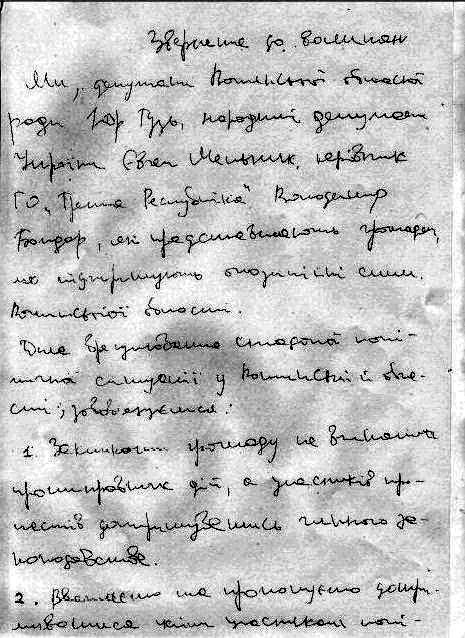 Звернення до волинян
Ми, депутати Волинської обласної
ради Ігор Гузь, народний депутат
України Євген Мельник, керівник
ГО „Третя Республіка" Володимир
Бондар, які представляють громадян,
що підтримують опозиційні сили
Волинської області.
Для врегулювання складної полі-
тичної ситуації у Волинській обла-
сті, зобов'язуємося:
1. Закликати громаду не вчиняти
протиправних дій, а учасників про-
тестів дотримуватись чинного за-
конодавства.
2. Вважаємо та пропонуємо дотри-
муватися всіми учасниками полі-